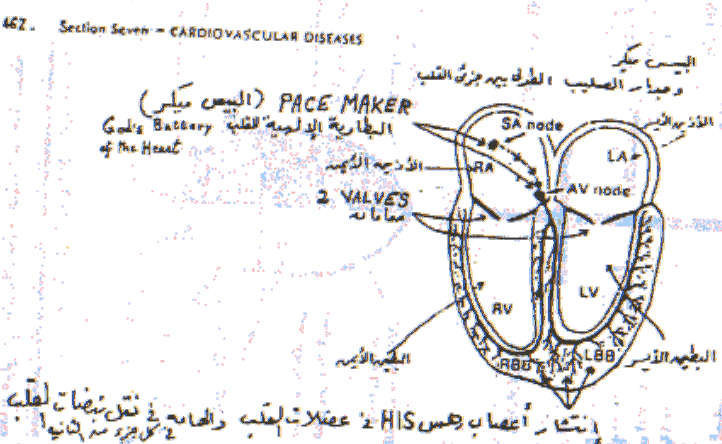 462. Section Seven - CARDIOVASCULAR DISEASES
البيس ميكر
وجدار الصليب الطولى بين جزئى القلب
(البيس ميكر) PACE MAKER
God's Battery البطارية الإلهية للقلب
of the Heart
SA node
الأذين الأيسر
LA
الأذين الأيمن
RA
AV node
2 VALVES
صمامات
RV
LV
البطين الأيمن
RBB
LBB
البطين الأيسر
انتشار أعصاب هس HIS في عضلات القلب والهامه في نقل نبضات القلب
في كل جزء من الثانية